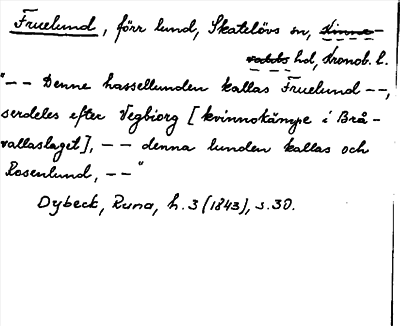 Fruelund, förr lund, Skatelövs sn, Kinne-
valds hd, Kronob. l.
"-- Denne hassellunden kallas Fruelund --,
serdeles efter Vegbiorg [kvinnokämpe i Brå-
vallaslaget], -- denna lunden kallas och
Rosenlund, --"
Dybeck, Runa, h. 3 (1843), s. 30.